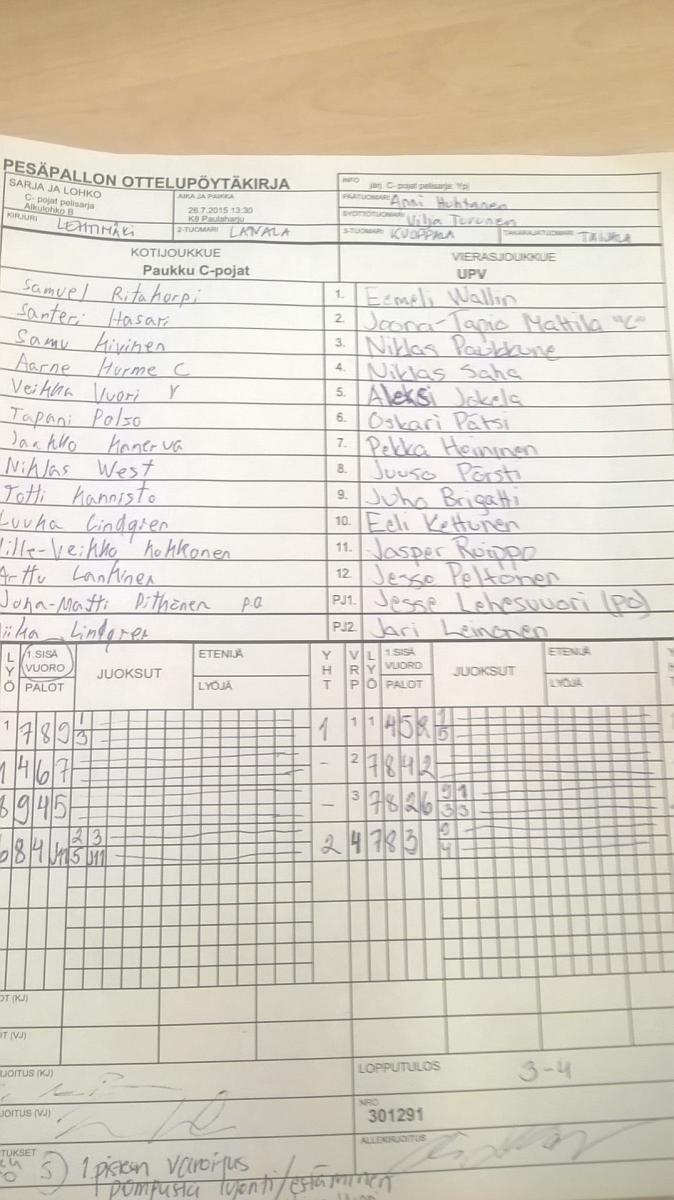 PESÄPALLON OTTELUPÖYTÄKIRJA
SARJA JA LOHKO
C- pojat pelisarja
Alkulohko B
AIKA JA PAIKKA
26.7.2015 13:30
K8 Pauluharju
INFO järj. C- pojat pelisarja: Ypj
PÄÄTUOMARI Anni Huhtanen
SYÖTTÖTUOMARI Vilja Turunen
KIRJURI LEHTIMÄKI
2-TUOMARI LANALA
3-TUOMARI KUOPPALA
TAKARAJATUOMARI
KOTIJOUKKUE
Paukku C-pojat
VIERASJOUKKUE
UPV
Samuel Ritakorpi 1. Eemeli Wallin
Santeri Hasari 2. Joona-Tapio Mattila "C"
Samu Kivinen 3. Niklas
Aarne Hurme C 4. Niklas Saha
Veikka Vuori V 5. Aleksi Jokela
Tapani Polso 6. Oskari Pätsi
Jaakko Kanerva 7. Pekka Heininen
Niklas West 8. Juuso Pörsti
Totti Kannisto 9. Juho Brigatti
Luuka Lindgren 10. Eeli Kettunen
Ville-Veikko Kokkonen 11. Jasper Roippo
Arttu Lankinen 12. Jesse Peltonen
Juha-Matti Pitkänen PJ1. Jesse Lehesvuori (PO)
Lindgren PJ2. Jari Leinonen
LYÖ 1.SISÄ VUORO PALOT JUOKSUT ETENIJÄ LYÖJÄ YHT VRP LYÖ 1.SISÄ VUORO PALOT JUOKSUT ETENIJÄ LYÖJÄ
1 7 8 9 1/3 1 1 1 4 5 8 1/5
1 4 6 7 - 2 7 8 4 2
8 9 4 5 - 3 7 8 2 6 9/3 1/3
6 8 4 2/5 3/11 2 4 7 8 3
LOPPUTULOS 3-4
NRO
301291
ALLEKIRJOITUS
1 piskan varoitus
pompusta lyönti/estäminen